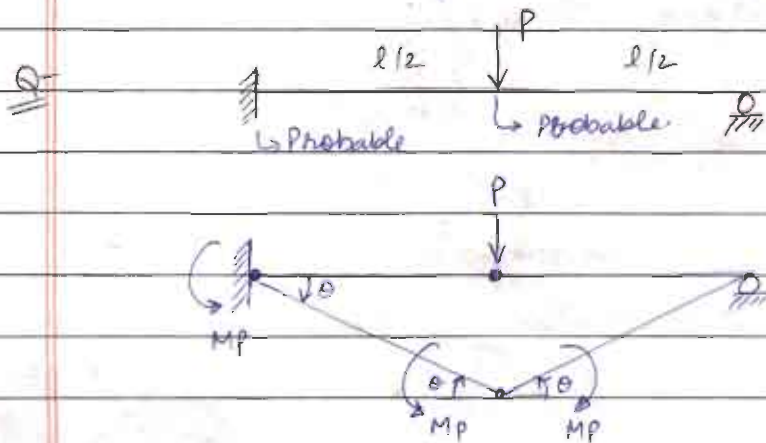 P
l/2 l/2
Q-
↳ Probable ↳ Probable
P
θ
MP
θ θ
MP MP